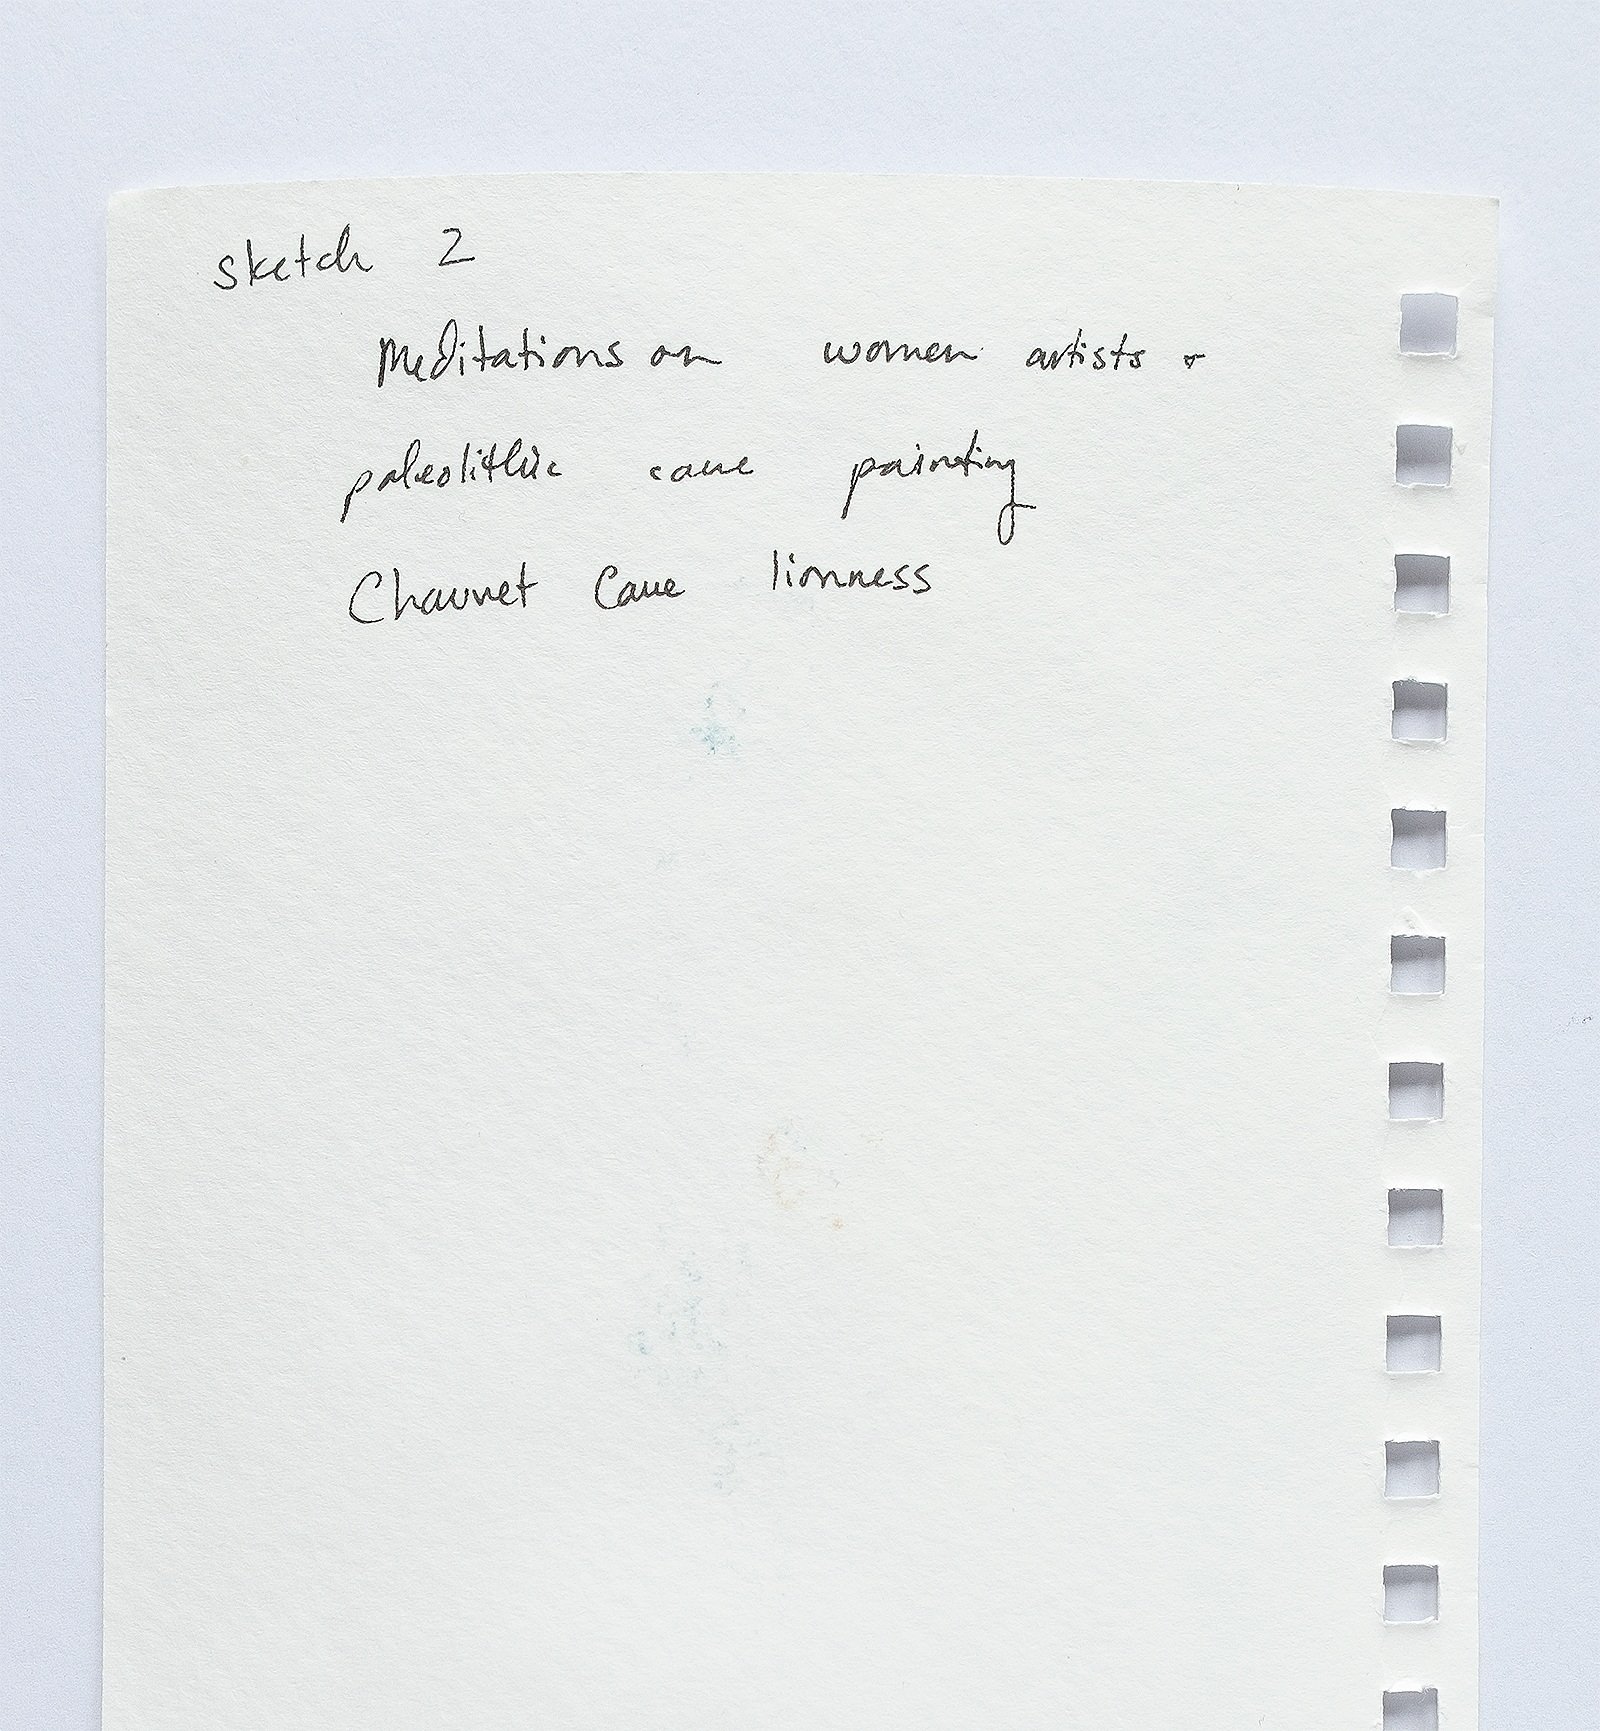 sketch 2
Meditations on women artists +
paleolithic cave painting
Chauvet Cave lionness